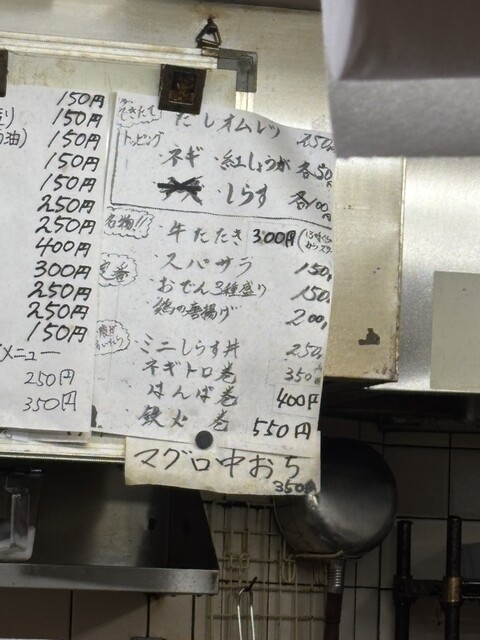 150円
り 150円
油) 150円
150円
150円
250円
250円
400円
300円
250円
250円
150円
メニュー
250円
350円
できたて
だしオムレツ 250
トッピング
・ネギ ・紅しょうが 各50円
・しらす 各100円
名物!!
・牛たたき 300円
定番
・スパサラ 150
・おでん3種盛り 150
・鶏の唐揚げ 200
・ミニしらす丼 250
・ネギトロ巻 350
・はんぱ巻 400円
・鉄火巻 550円
マグロ中おち
350円